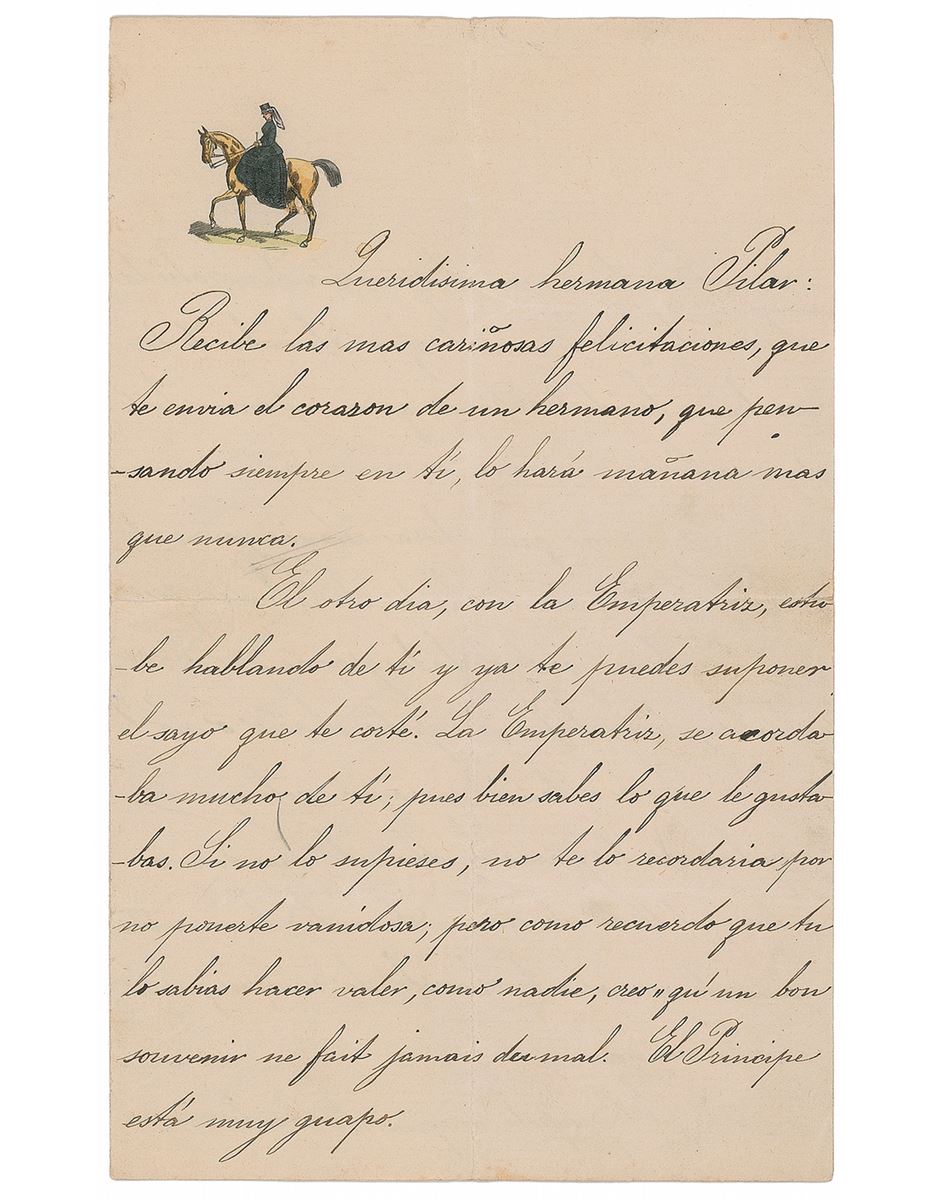 Queridisima hermana Pilar:
Recibe las mas cariñosas felicitaciones, que
te envia el corazon de un hermano, que pen-
-sando siempre en tí, lo hará mañana mas
que nunca.
El otro dia, con la Emperatriz, estu
-be hablando de tí y ya te puedes suponer
el sayo que te corté. La Emperatriz, se acorda
-ba mucho de tí; pues bien sabes lo que le gusta
-bas. Si no lo supieses, no te lo recordaria por
no ponerte vanidosa; pero como recuerdo que tu
lo sabias hacer valer, como nadie, creo "qú un bon
souvenir ne fait jamais des mal. El Principe
está muy guapo.